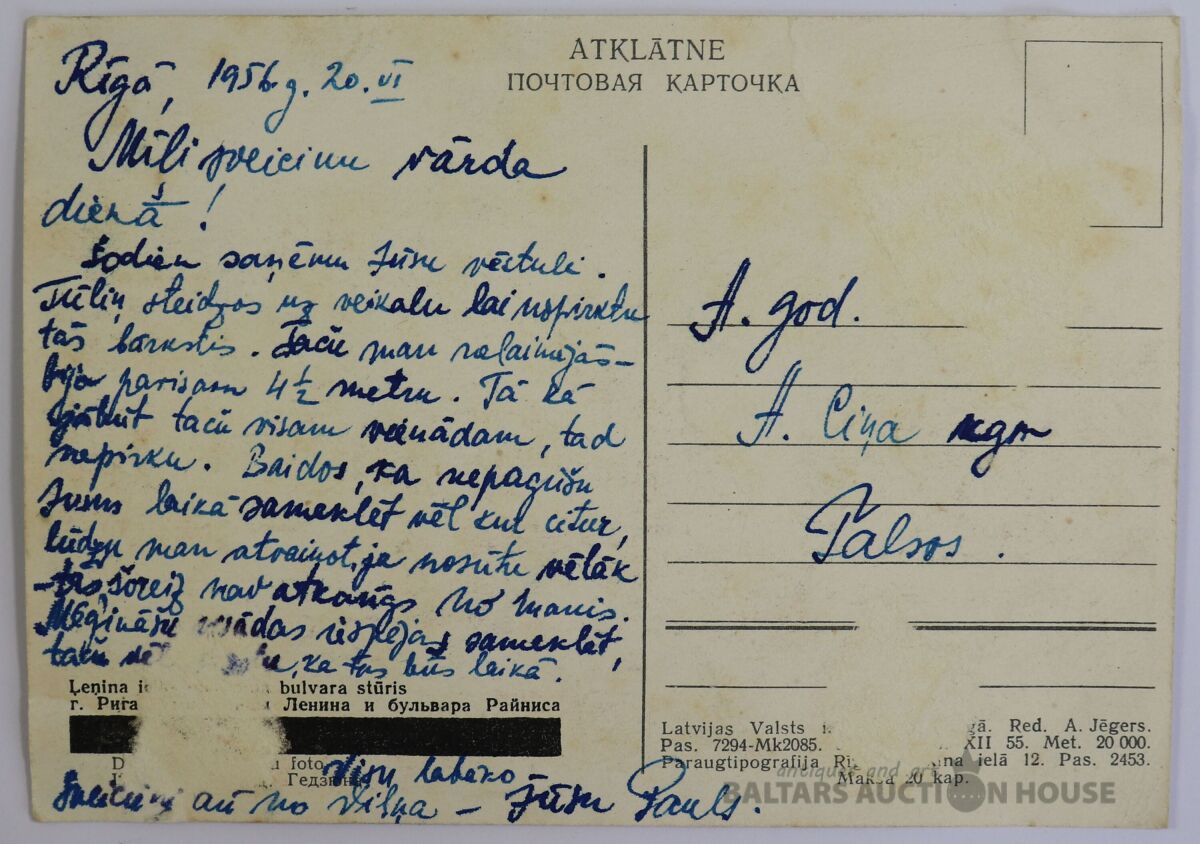 ATKLĀTNE
ПОЧТОВАЯ КАРТОЧКА
Rīgā, 1956.g. 20. VI
Mīļi sveicinu vārda
dienā!
Šodien saņēmu Jūsu vēstuli.
Tūliņ steidzos uz veikalu lai nopirktu
tās bārkstis. Taču man nelaimējās –
bija pavisam 4½ metru. Tā kā
jābūt taču visam vienādam, tad
nepirku. Baidos, ka nepagūšu
Jums laikā sameklēt vēl kur citur,
lūdzu man atvainot, ja nosūtu vēlāk
– tas šoreiz nav atkarīgs no manis.
Mēģināšu iespējas sameklēt,
taču ka tas būs laikā.
Ļeņina bulvara stūris
г. Рига Ленина и бульвара Райниса
foto
Visu labāko
Sveicieni arī no Viļņa – Jūsu Pauls.
A. god.
A. Ciņa kgm
Talsos.
Latvijas Valsts Red. A. Jēgers.
Pas. 7294-Mk2085. XII 55. Met. 20 000.
Paraugtipografija ielā 12. Pas. 2453.
Maksā 20 kap.
antiques and art
BALTARS AUCTION HOUSE